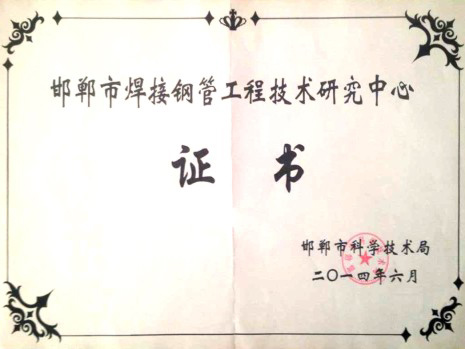 邯郸市焊接钢管工程技术研究中心
证书
邯郸市科学技术局
二〇一四年六月